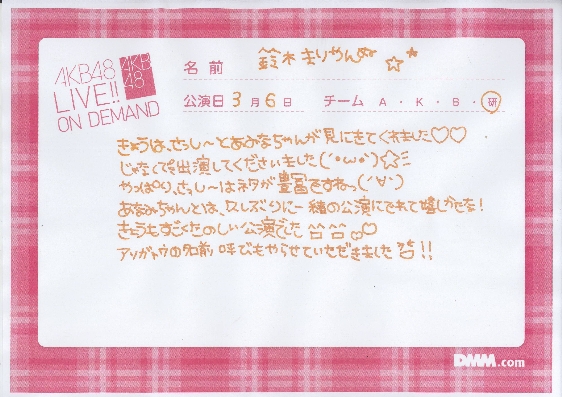 AKB48
LIVE!!
ON DEMAND
AKB
48
名前 鈴木まりやんぬ☆*
公演日 3月6日 チーム A・K・B・研
きょうは、さっしーとあみなちゃんが見にきてくれました♡♡
じゃなくて出演してくださいました(´・ω・`)☆彡
やっぱり、さっしーはネタが豊富ですねっ(´∀`)
あみなちゃんとは、久しぶりに一緒の公演にでれて嬉しかたな!
きょうもすごくたのしい公演でした 笑笑♡♡
アリガトウの名前呼びもやらせていただきました 笑!!
DMM.com